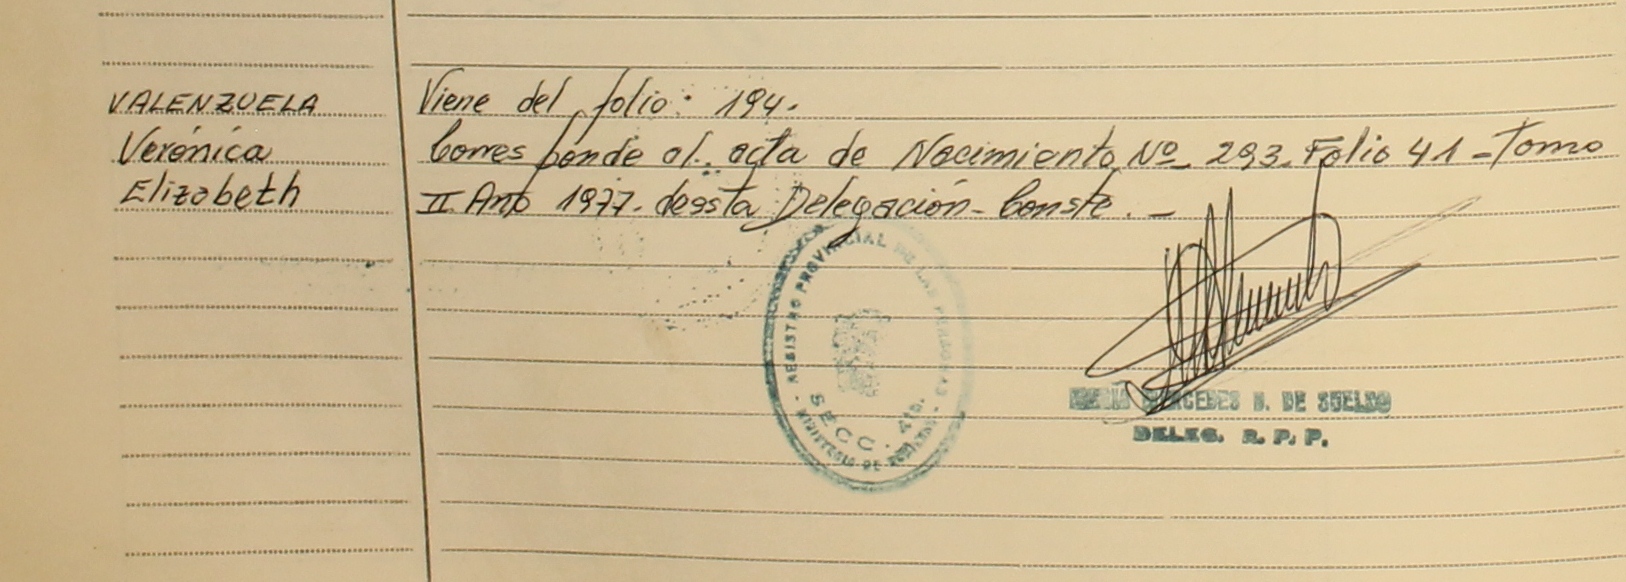 VALENZUELA
Verónica
Elizabeth
Viene del folio: 194.
Corresponde al. acta de Nacimiento Nº 293. Folio 41 - Tomo
II Año 1977. deesta Delegación - Conste. -
REGISTRO PROVINCIAL DE LAS PERSONAS
SECC. 4to.
MINISTERIO DE GOBIERNO
MERCEDES D. DE SUELDO
DELEG. R. P. P.